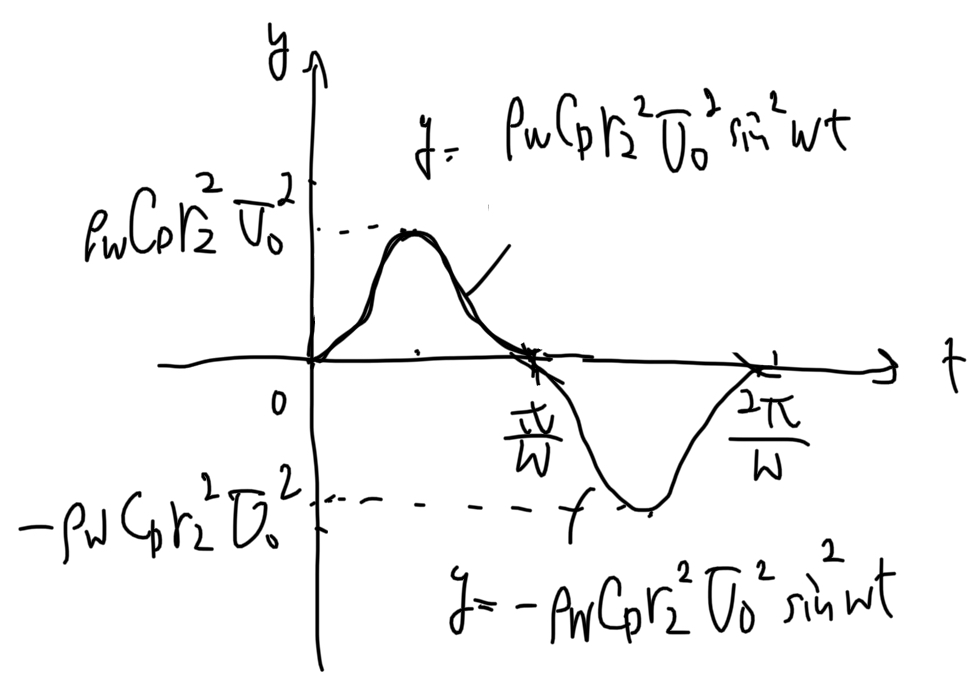 y
y = ρw CD r₂² U₀² sin² wt
ρw CD r₂² U₀²
t
0
π/w
2π/w
-ρw CD r₂² U₀²
y = -ρw CD r₂² U₀² sin² wt